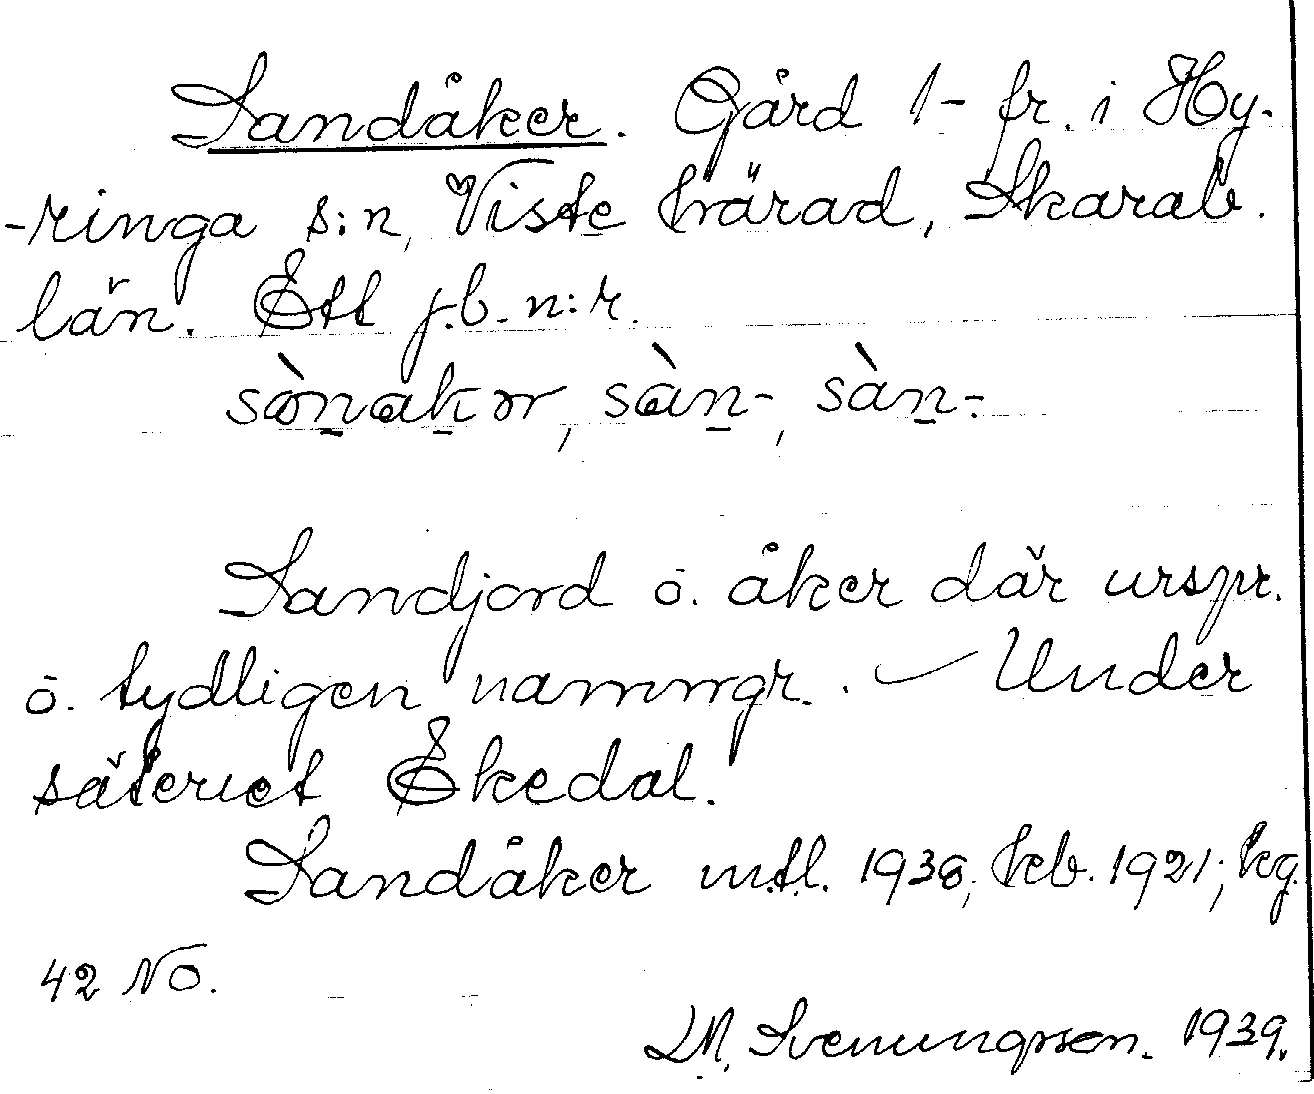 Sandåker. Gård 1- fr. i Hy-
-ringa s:n, Viste härad, Skarab.
län. Ett j.b. n:r.
sònakər, sàn-, sàn-.
Sandjord o. åker där urspr.
o. tydligen namngr. . — Under
säteriet Ekedal.
Sandåker m.fl. 1938, keb. 1921; kg.
42 NO.
L.M. Svenungsson. 1939.